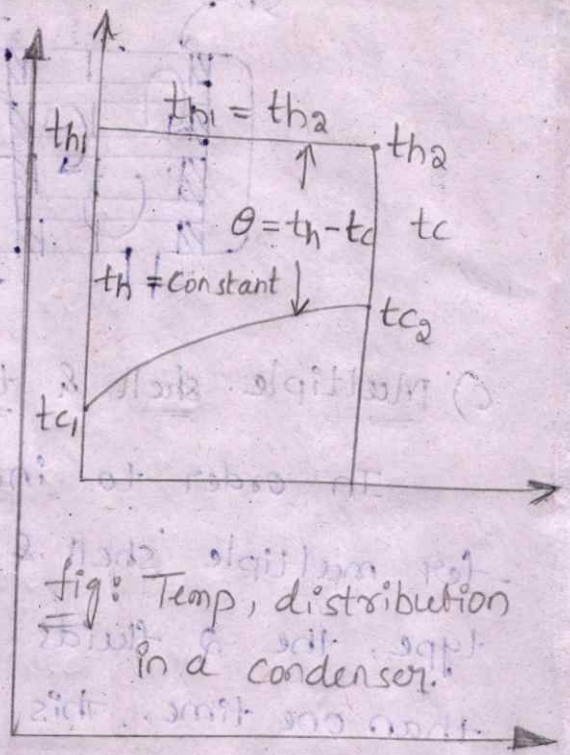 th1 = th2
th1
th2
θ = th - tc
tc
th = constant
tc2
tc1
fig: Temp, distribution
in a condenser.